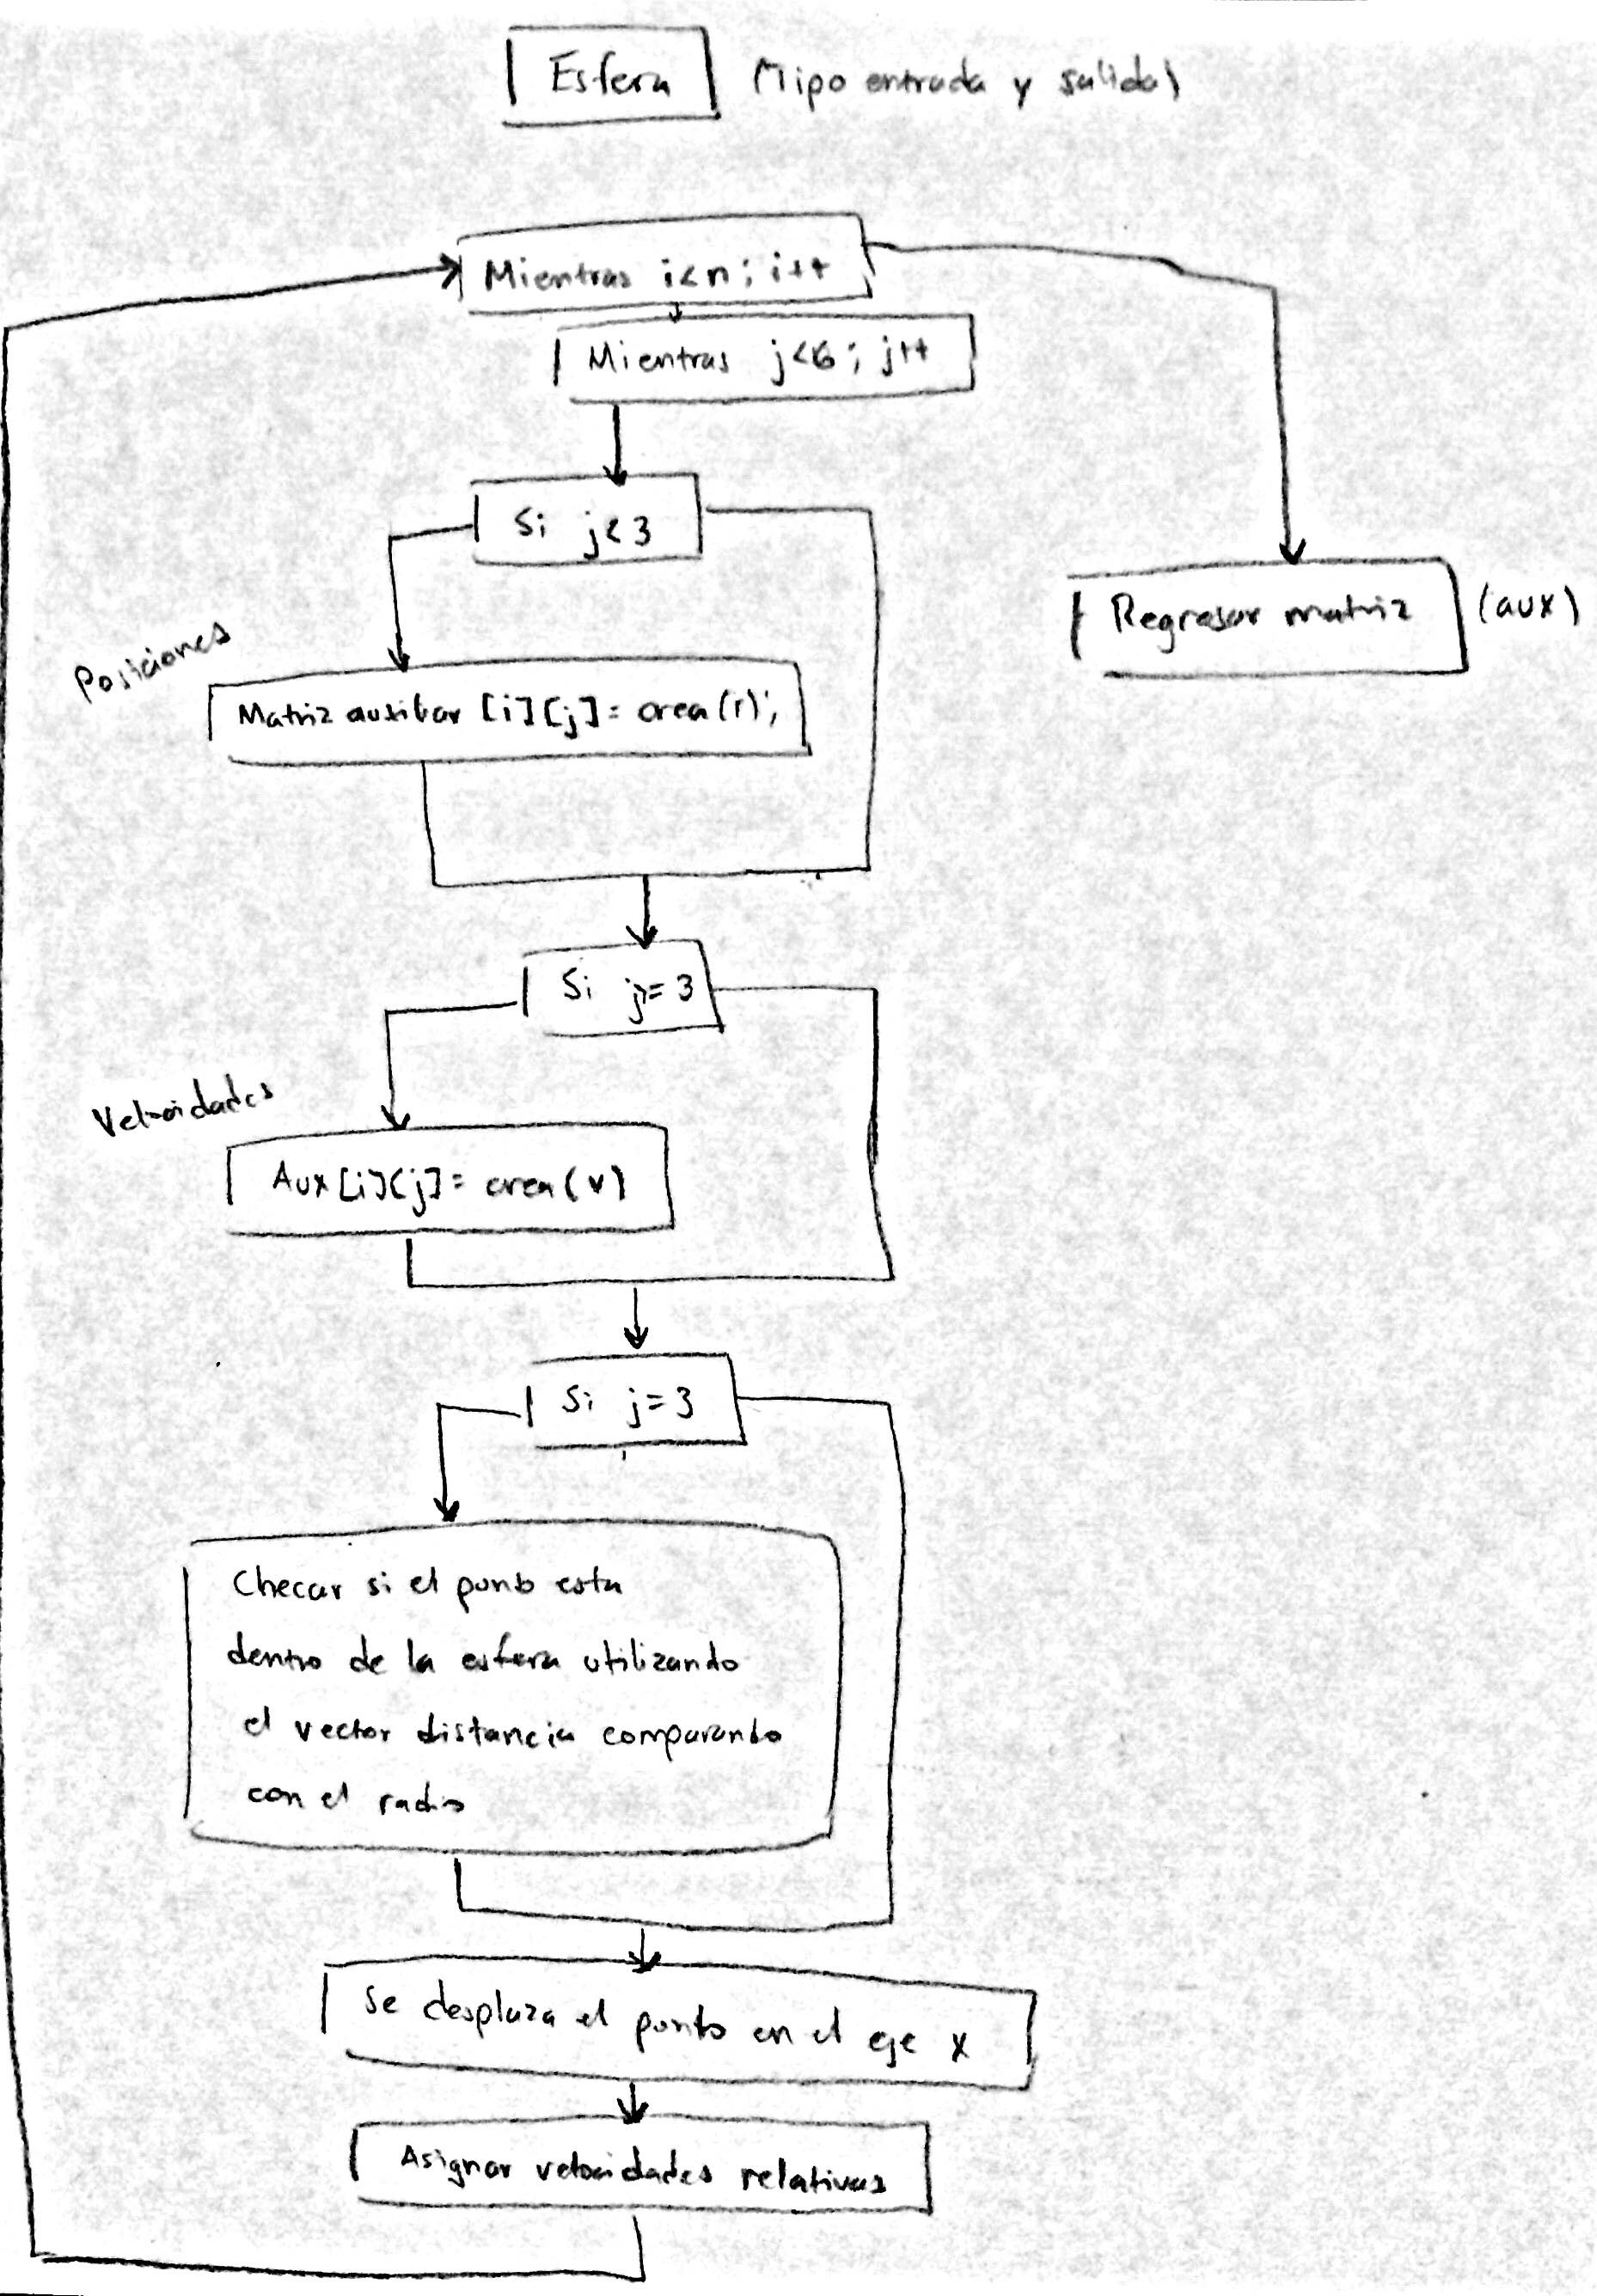 Esfera (Tipo entrada y salida)
Mientras i<n; i++
Mientras j<6; j++
Si j<3
Regresar matriz (aux)
Posiciones
Matriz auxiliar [i][j]= crea(r);
Si j>=3
Velocidades
Aux[i][j]= crea(v)
Si j=3
Checar si el punto esta
dentro de la esfera utilizando
el vector distancia comparando
con el radio
Se desplaza el punto en el eje x
Asignar velocidades relativas